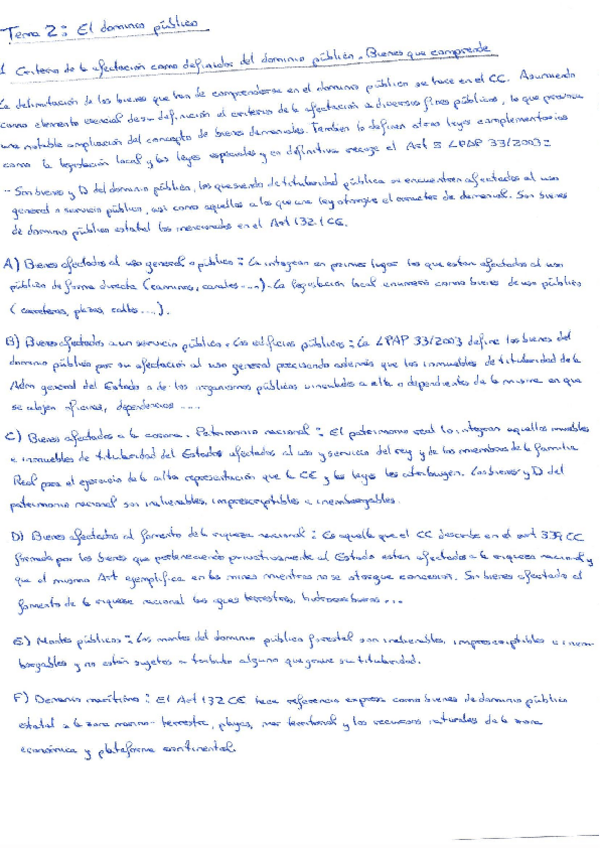 Tema 2: El dominio público
1 Criterio de la afectación como definidor del dominio público. Bienes que comprende
La delimitación de los bienes que han de comprenderse en el dominio público se hace en el CC. Asumiendo
como elemento esencial de su definición el criterio de la afectación a diversos fines públicos, lo que provoca
una notable ampliación del concepto de bienes demaniales. Tambien lo definen otras leyes complementarias
como la legislación local y las leyes especiales y en definitiva recoge el Art 5 LPAP 33/2003:
- Son bienes y D del dominio público, los que siendo de titularidad pública se encuentran afectados al uso
general o servicio público, así como aquellos a los que una ley otorgue el caracter de demanial. Son bienes
de dominio público estatal los mencionados en el Art 132.1 CE.
A) Bienes afectados al uso general o público: La integran en primer lugar los que estan afectados al uso
público de forma directa (caminos, canales ...). La legislación local enumera como bienes de uso público
(carreteras, plazas, calles ....).
B) Bienes afectados a un servicio público. Los edificios públicos: La LPAP 33/2003 define los bienes del
dominio público por su afectación al uso general precisando además que los inmuebles de titularidad de la
Adm general del Estado o de los organismos públicos vinculados a ella o dependientes de la misma en que
se alojen oficinas, dependencias ....
C) Bienes afectados a la corona. Patrimonio nacional: El patrimonio real lo integran aquellos muebles
e inmuebles de titularidad del Estado afectados al uso y servicio del rey y de los miembros de la familia
Real para el ejercicio de la alta representación que la CE y las leyes les atribuyen. Los bienes y D del
patrimonio nacional son inalienables, imprescriptibles e inembargables.
D) Bienes afectados al fomento de la riqueza nacional: Es aquella que el CC describe en el art 339 CC
formada por los bienes que perteneciendo privativamente al Estado estan afectados a la riqueza nacional y
que el mismo Art ejemplifica en las minas mientras no se otorgue concesion. Son bienes afectados al
fomento de la riqueza nacional las aguas terrestres, hidrocarburos ...
E) Montes públicos: Los montes del dominio público forestal son inalienables, imprescriptibles e inem-
bargables y no están sujetos a tributo alguno que grave su titularidad.
F) Demanio marítimo: El Art 132 CE hace referencia expresa como bienes de dominio público
estatal a la zona marino-terrestre, playas, mar territorial y los recursos naturales de la zona
económica y plataforma continental.